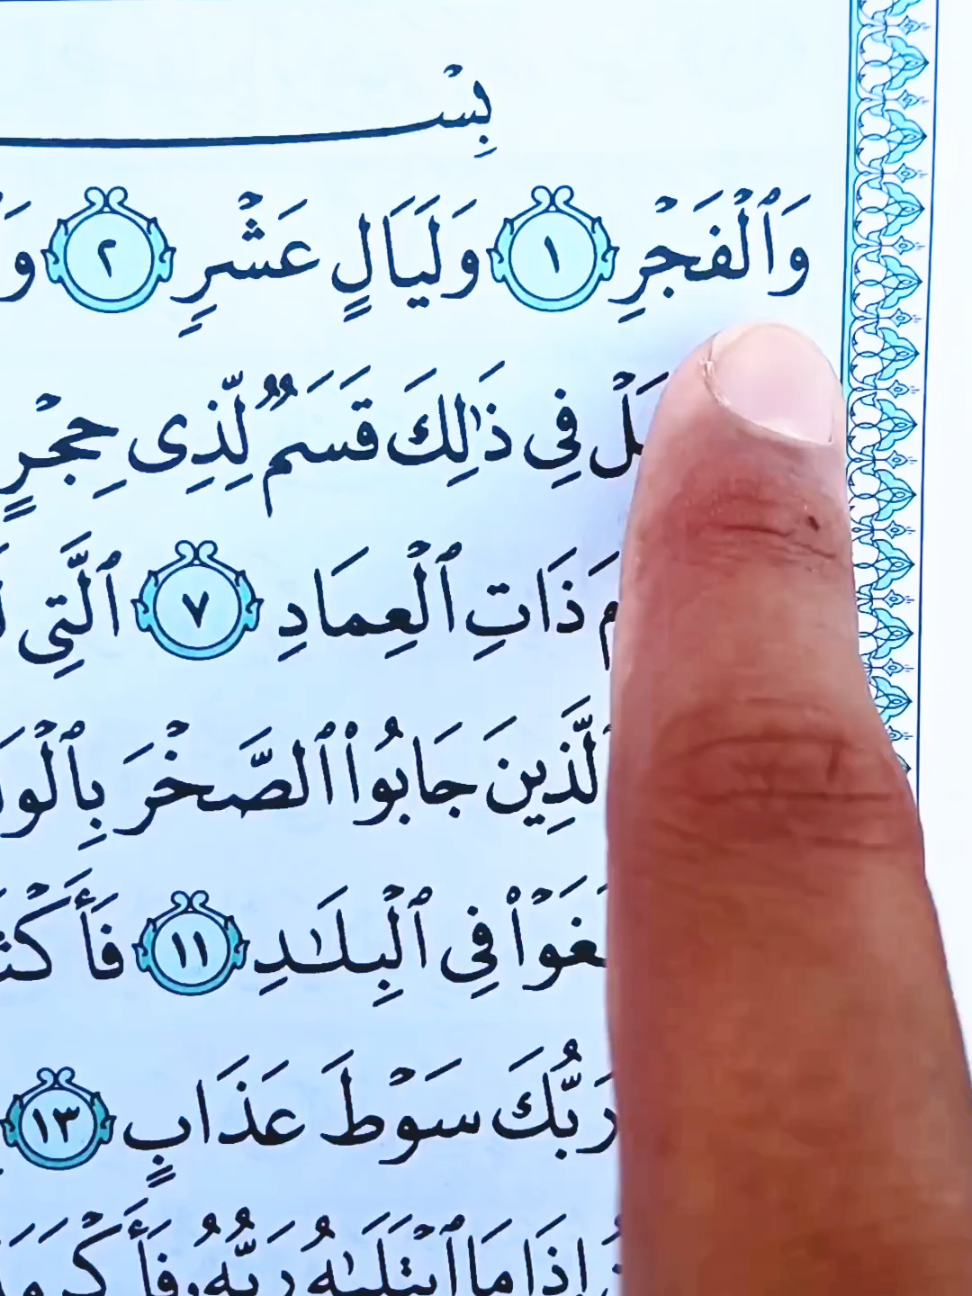 بِسْ
وَٱلْفَجْرِ ١ وَلَيَالٍ عَشْرٍ ٢
فِى ذَٰلِكَ قَسَمٌ لِّذِى حِجْرٍ
ذَاتِ ٱلْعِمَادِ ٧ ٱلَّتِى
ٱلَّذِينَ جَابُوا۟ ٱلصَّخْرَ
فِى ٱلْبِلَـٰدِ ١١
رَبُّكَ سَوْطَ عَذَابٍ ١٣
إِذَا مَا ٱبْتَلَىٰهُ رَبُّهُۥ